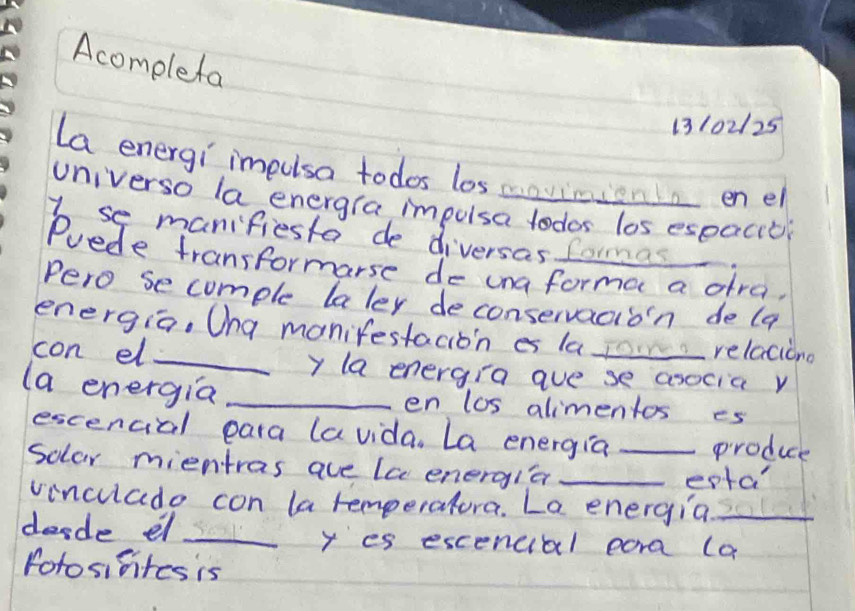 Acompleta
13/02/25
La energí impulsa todos los movimiento en el
universo la energía impulsa todos los espacio
y se manifiesta de diversas formas.
Puede transformarse de una forma a otra,
Pero se comple la ley de conservación de la
energía. Una manifestación es la ____ relaciona
con el ____ y la energía que se asocia y
la energía ____ en los alimentos es
escencial para la vida. La energía ____ produce
Solar mientras que la energía ____ está
vinculado con la temperatura. La energía solar
desde el sol y es escencial para la
Fotosíntesis